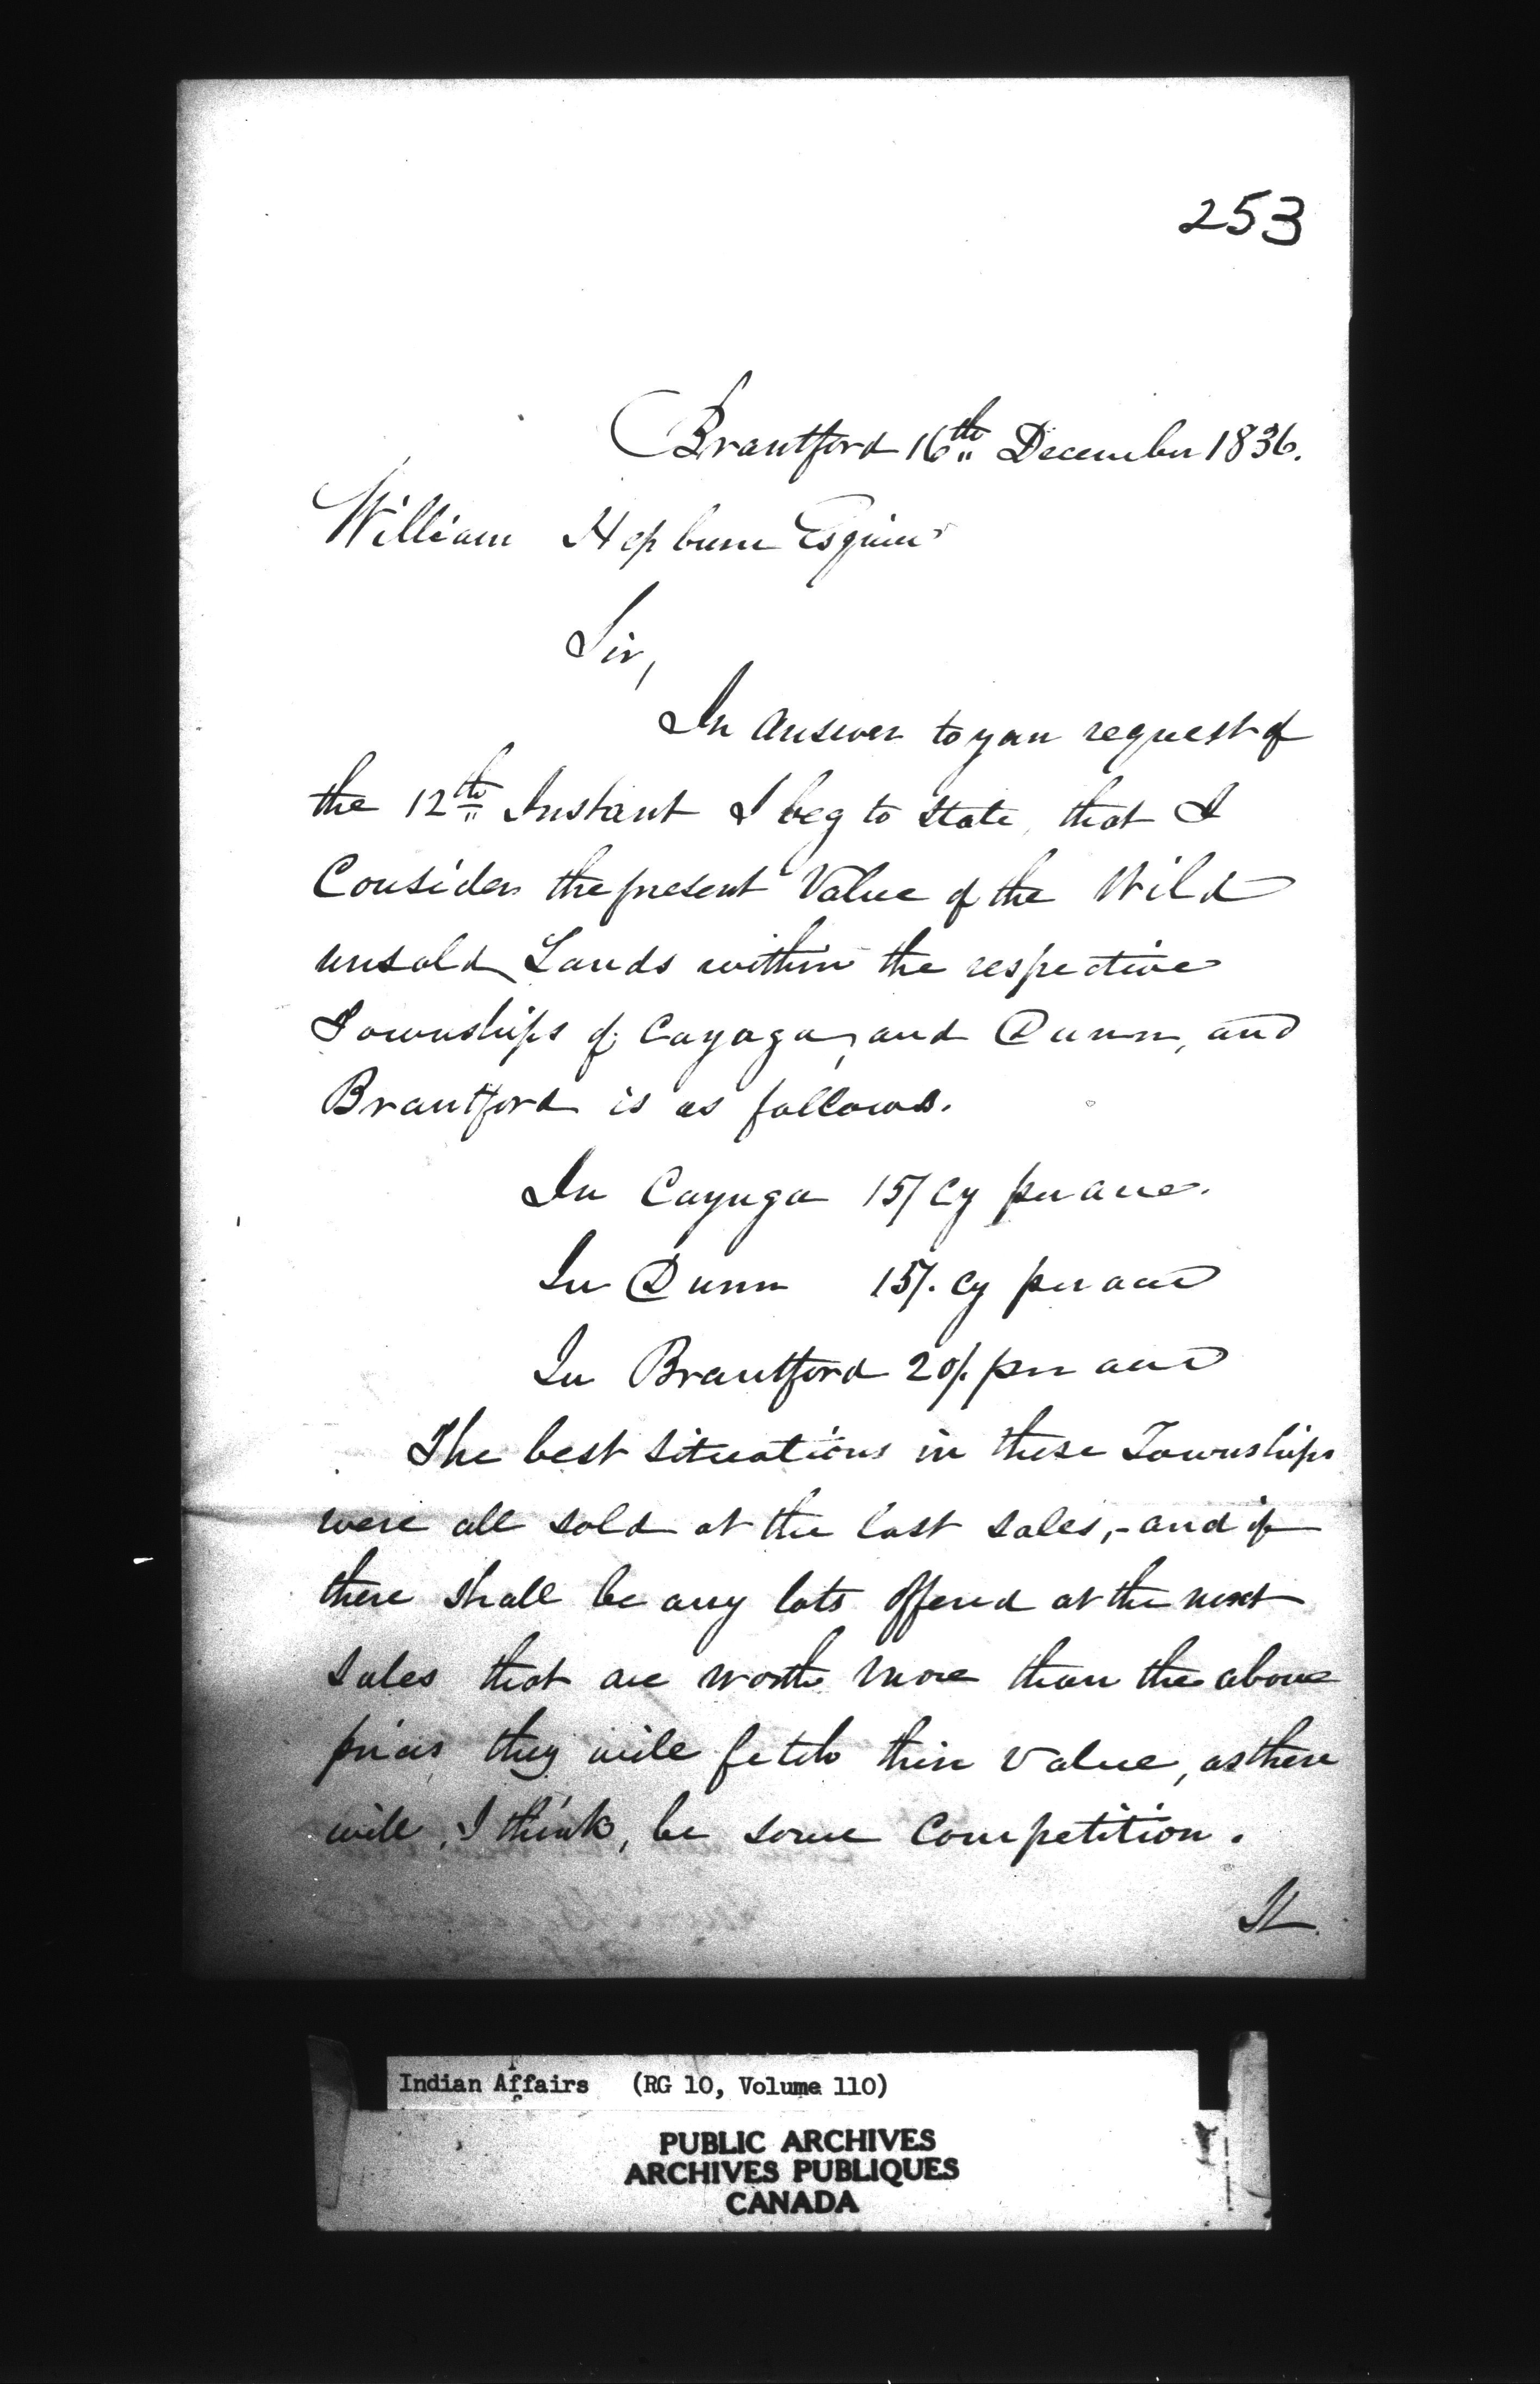 253
Brantford 16th December 1836.
William Hepburn Esquire
Sir,
In Answer to your request of
the 12th Instant I beg to state, that I
Consider the present Value of the Wild
unsold Lands within the respective
Townships of Cayuga, and Dunn, and
Brantford is as follows.
In Cayuga 15/ Cy per acre.
In Dunn 15/. Cy per acre
In Brantford 20/. per acre
The best situations in these Townships
were all sold at the last sales,- and if
there shall be any lots offered at the next
sales that are worth more than the above
prices they will fetch their Value, as there
will, I think, be some Competition.
It
Indian Affairs (RG 10, Volume 110)
PUBLIC ARCHIVES
ARCHIVES PUBLIQUES
CANADA